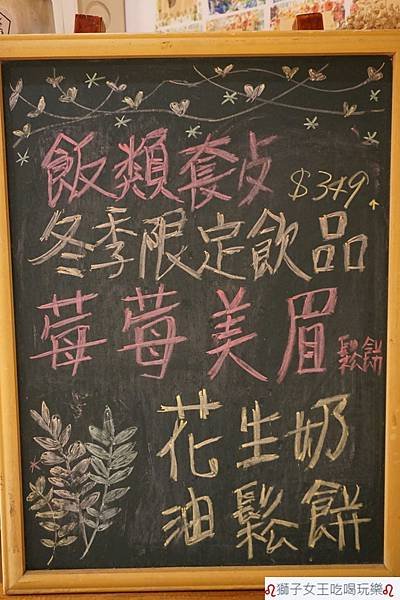 飯類套点 $349↑
冬季限定飲品
莓莓美眉鬆餅
花生奶
油鬆餅
獅子女王吃喝玩樂